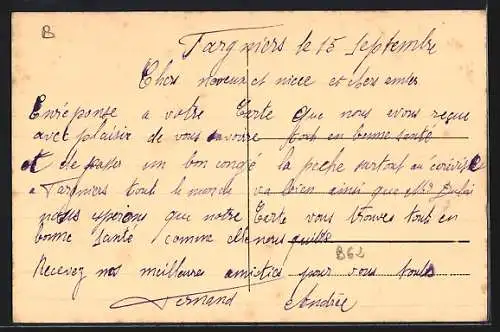 B
Targniers le 15 Septembre
Chers neveux et niece et chers
Enréponse a votre Carte que nous avons reçue
avec plaisir de vous savoire tous en bonne santé
et de passer un bon congé la peche surtout au
a Targniers tout le monde va bien ainsi que Mr
nous esperons que notre Carte vous trouves tout en
bonne santé comme elle nous quitte
B62
Recevez nos meilleures amitiées pour vous touts
Fernand Andrée